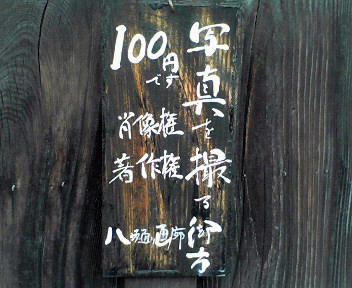 写真を撮る御方
100円です
肖像権
著作権
八面画廊